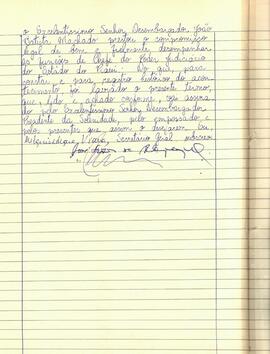 o Excelentíssimo Senhor Desembargador João
Batista Machado prestou o compromisso
legal de bem e fielmente desempenhar
as funções de Chefe do Poder Judiciário
do Estado do Piauí. Do que, para
constar e para registro histórico do acon-
tecimento, foi lavrado o presente Termo,
que, lido e achado conforme, vai assina-
do pelo Excelentíssimo Senhor Desembargador
Presidente da Solenidade, pelo empossado e
pelos presentes que assim o desejarem. Eu,
Viana, Secretário Geral